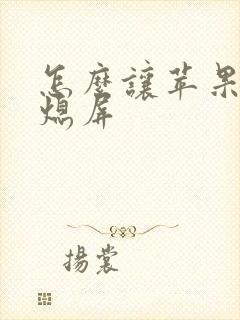 怎麼讓苹果
熄屏
揚裳